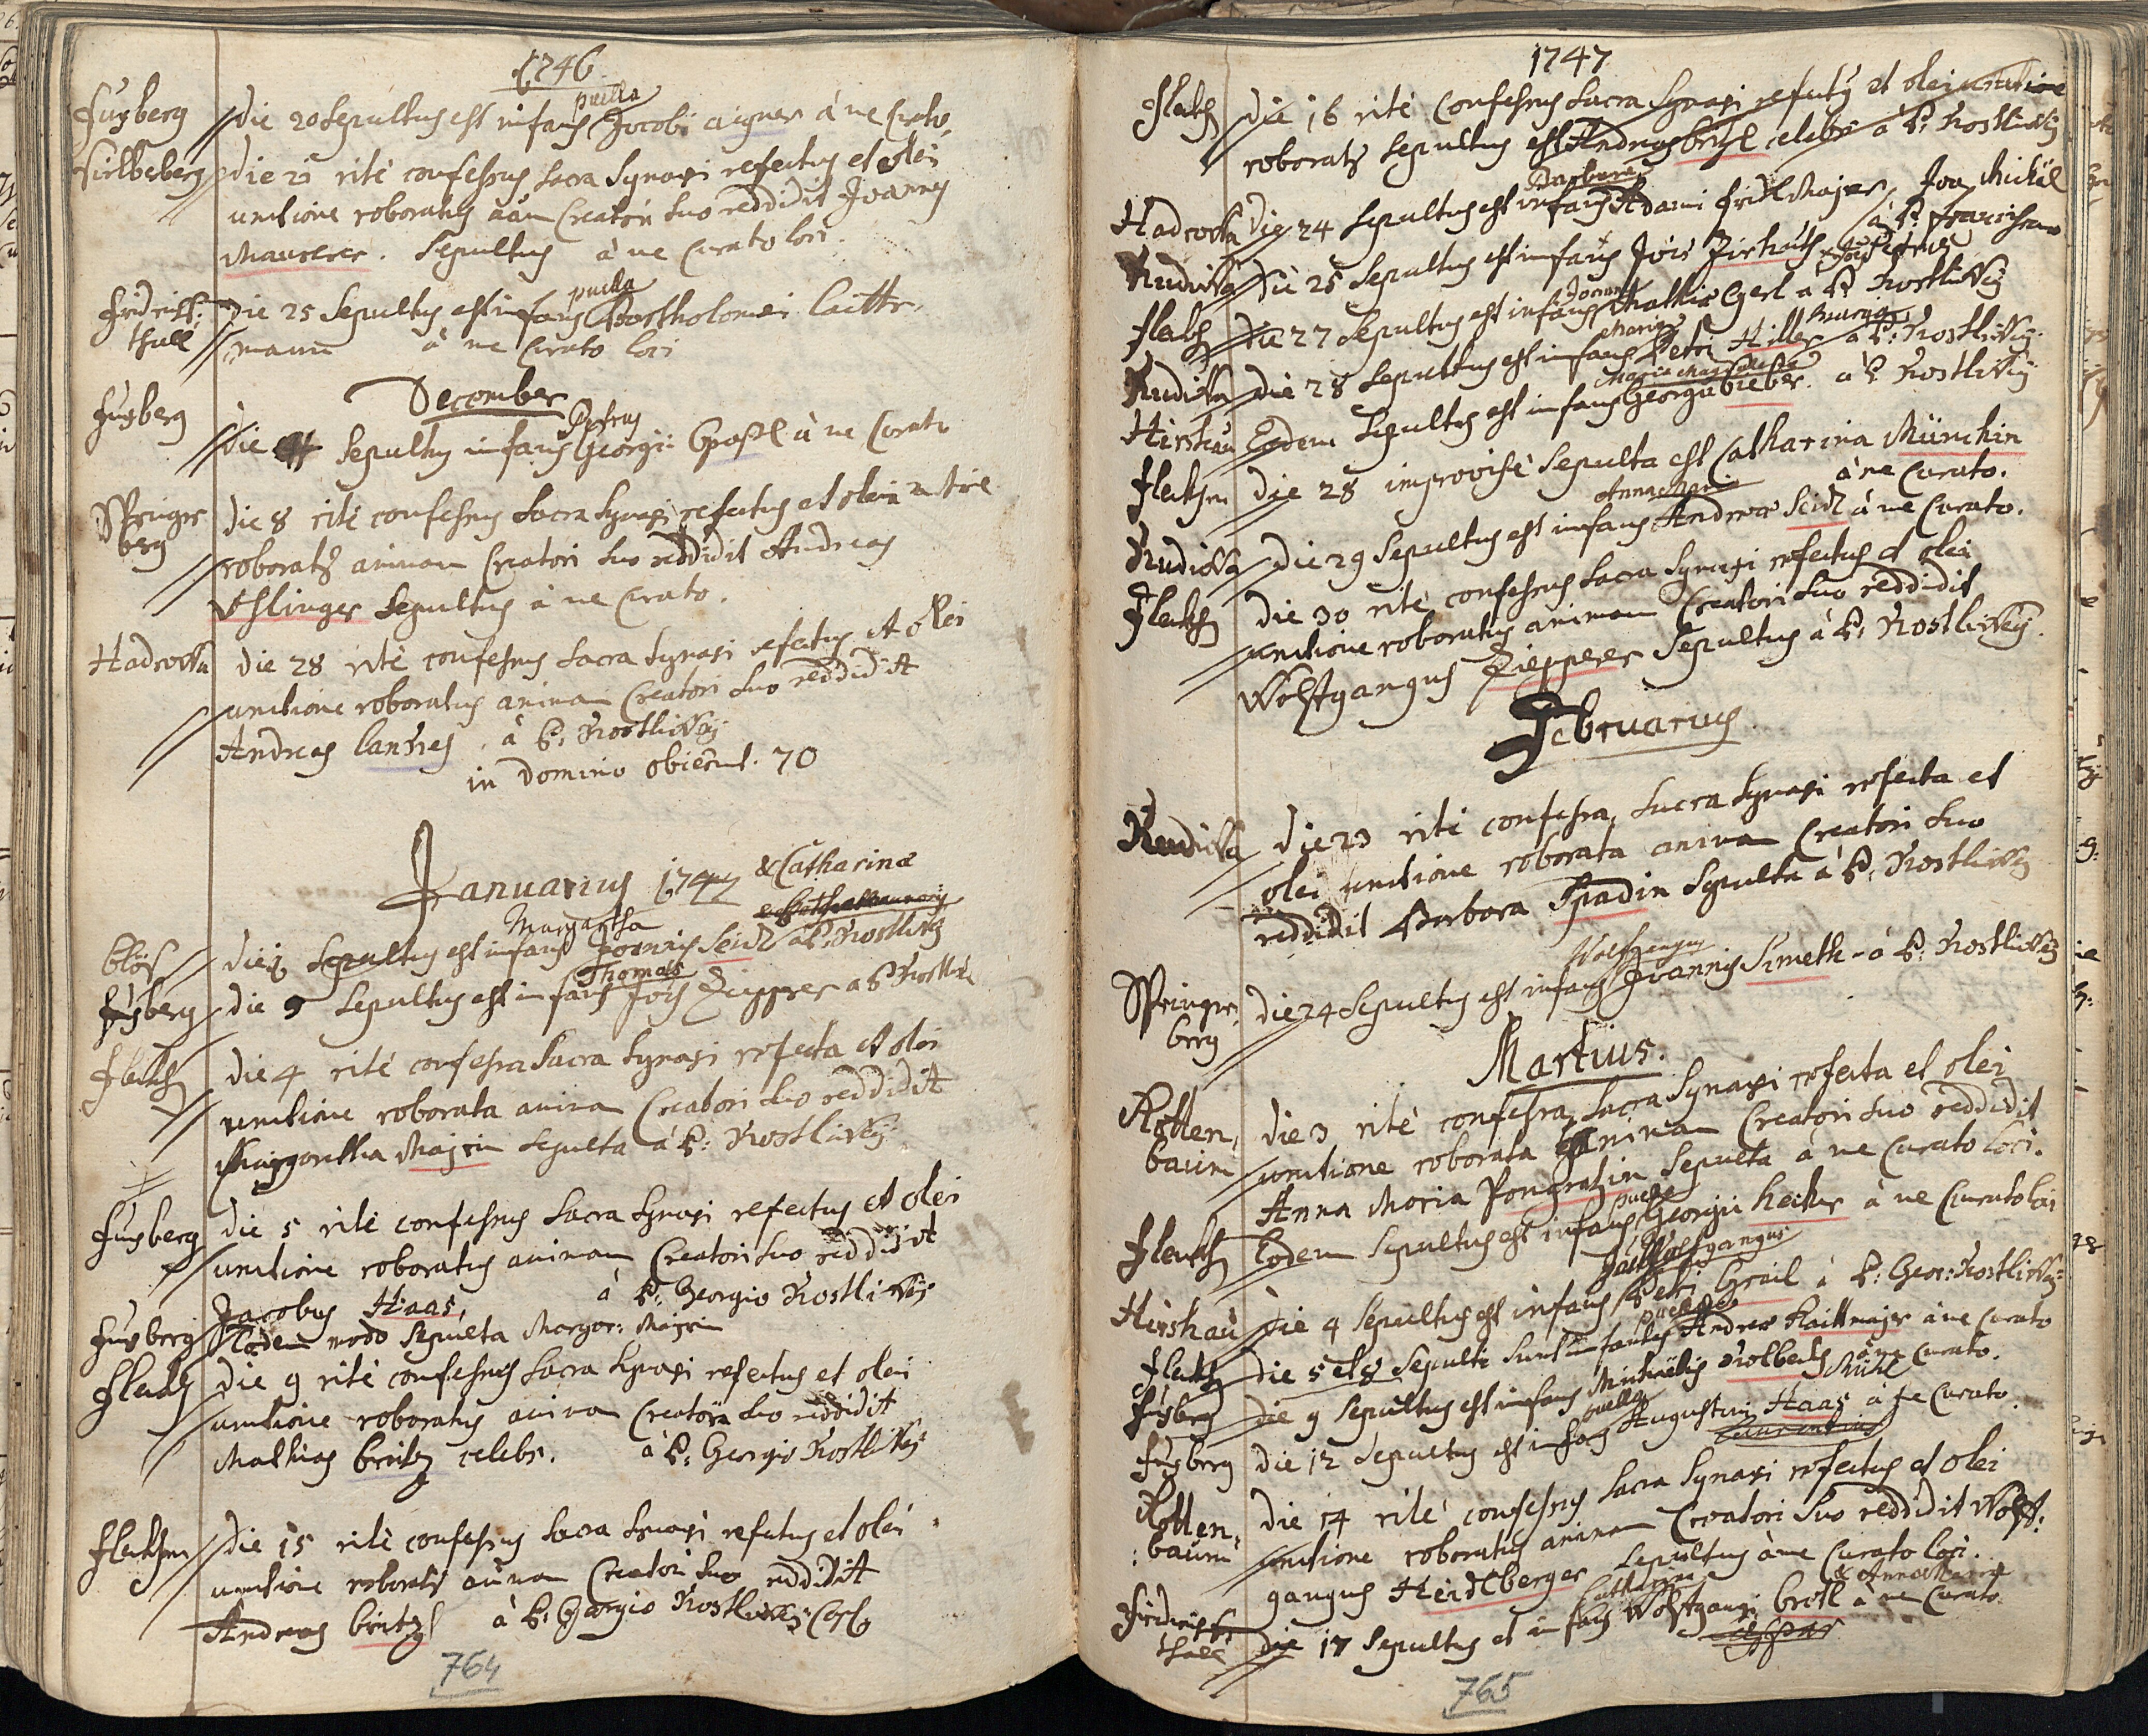 1746
puella
Fuxberg die 20 Sepultus est infans Jocobi aigner à me Curato
die 21 rité confessus Sacra Synaxi refectus et olei
unctione roboratus aãm Creatori suo reddidit Joannes
Maurerer. Sepultus à me Curato loci.
puella
Fridrichs: die 25 Sepultus est infans Bartholomei laitter,
thall mann à me Curato loci
December
Petrus
Fuxberg die Sepultus infans Georgii Gpassl à me Curato
Springer die 8 rité confessus Sacra Synaxi refectus et olei
berg roboratus animam Creatori suo reddidit Andreas
Sepultus à me Curato.
Hadrovka die 28 rité confessus Sacra Synaxi refectus et olei
unctione roboratus animam Creatori suo reddidit
Andreas à P: Kostlivky
in Domino obierunt. 70
Januarius 1747 & Catharinæ
Margaretha
die Sepultus est infans Joannis Seidl à P: Kostlivky
Thomas
Fuxberg die 3 Sepultus est infans Jois Ziepperer à P Kostliv
Flecken die 4 rité confessa Sacra Synaxi refecta et olei
unctione roborata animam Creatori suo reddidit
Margaretha Majrin Sepulta à P: Kostlivky
Fuxberg die 5 rité confessus Sacra Synaxi refectus et olei
unctione roboratus animam Creatori suo reddidit
Jacobus Haas. à P: Georgio Kostlivky
Fuxberg Eodem modo Sepulta Margar: Majrin
Flecken die 9 rité confessus Sacra Synaxi refectus et olei
unctione roboratus animam Creatori suo reddidit
Mathias britz celebs. à P: Georgio Kostlivky
Flecken die 15 rité confessus Sacra Synaxi refectus et olei
unctione roboratus animam Creatori suo reddidit
Andreas britzl à P: Georgio Kostlivky
764
1747
Flecken die 16 rité Confessus Sacra Synaxi refectus et olei unctione
roboratus Sepultus est Andreas britzl celebs à P: Kostlivky
Barbara
Hadrovka die 24 Sepultus est infans Adami fridl Majer, Joa, Michäel
à P: franciscano
Rudivka die 25 Sepultus est infans Jois Zirhuth
Flecken die 27 Sepultus est infans Mathiæ Gerl à P. Kostlivky
Maria
Rudivka die 28 Sepultus est infans Petri Hiller à P: Kostlivky
Maria Magdalena
Hirschau Eodem Sepultus est infans Georgii bieber. à P Kostlivky
Flecken die 28 improvisé Sepulta est Catharina Münchin
à me Curato.
Anna Maria
Rudivka die 29 Sepultus est infans Andreæ Seidl à me Curato.
Flecken die 30 rité confessus Sacra Synaxi refectus et olei
unctione roboratus animam Creatori suo reddidit
Wolfgangus Ziepperer Sepultus à P: Kostlivky
Februarius
Rudivka die 23 rité confessa, Sacra Synaxi refecta et
olei unctione roborata animam Creatori suo
reddidit Barbara Spadin Sepulta à P. Kostlivky
Wolfgangus
Springer, die 24 Sepultus est infans Joannis Simeth - à P: Kostlivky
berg
Martius.
Rotten, die 3 rité confessa, Sacra Synaxi refecta et olei
baum unctione roborata animam Creatori suo reddidit
Anna Maria Pongratzin Sepulta à me Curato loci.
puella
Flecken Eodem Sepultus est infans Georgii heiker à me Curato loci
Wolfgangus
Hirschau die 4 Sepultus est infans Petri Grail à P: Geor: Kostlivky
Flecken die 5 et 8 Sepulti sunt infantes Andreæ Raittmajr à me Curato
Fuxberg die 9 Sepultus est infans Michaëlis Kolbeck à me Curato.
puella
Fuxberg die 12 Sepultus est infans Augustini Haas à me Curato.
Rotten: die 14 rité confessus Sacra Synaxi refectus et olei
baum unctione roboratus animam Creatori suo reddidit Wolf:
gangus Heidlberger Sepultus à me Curato loci.
Catharina & Anna Maria
Fridrichs die 17 Sepultus est infans Wolfgangi brotl à me Curato
thall
765